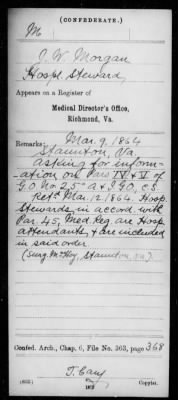 (CONFEDERATE.)
M
J. W. Morgan
Hospl. Steward,
Appears on a Register of
Medical Director's Office,
Richmond, Va.
Remarks: Mar. 9. 1864
Staunton, Va.
asking for inform-
ation on Pars IV & V of
G.O. No. 25 A & I GO, CS
Retd Mar. 12. 1864. Hosp.
Stewards in accord. with
Par. 45, Med. Reg. are Hosp.
attendants, & are included
in said order.
(Surg. McHoy, Staunton, on.)
Confed. Arch., Chap. 6, File No. 363, page 368
(635)
Copyist.